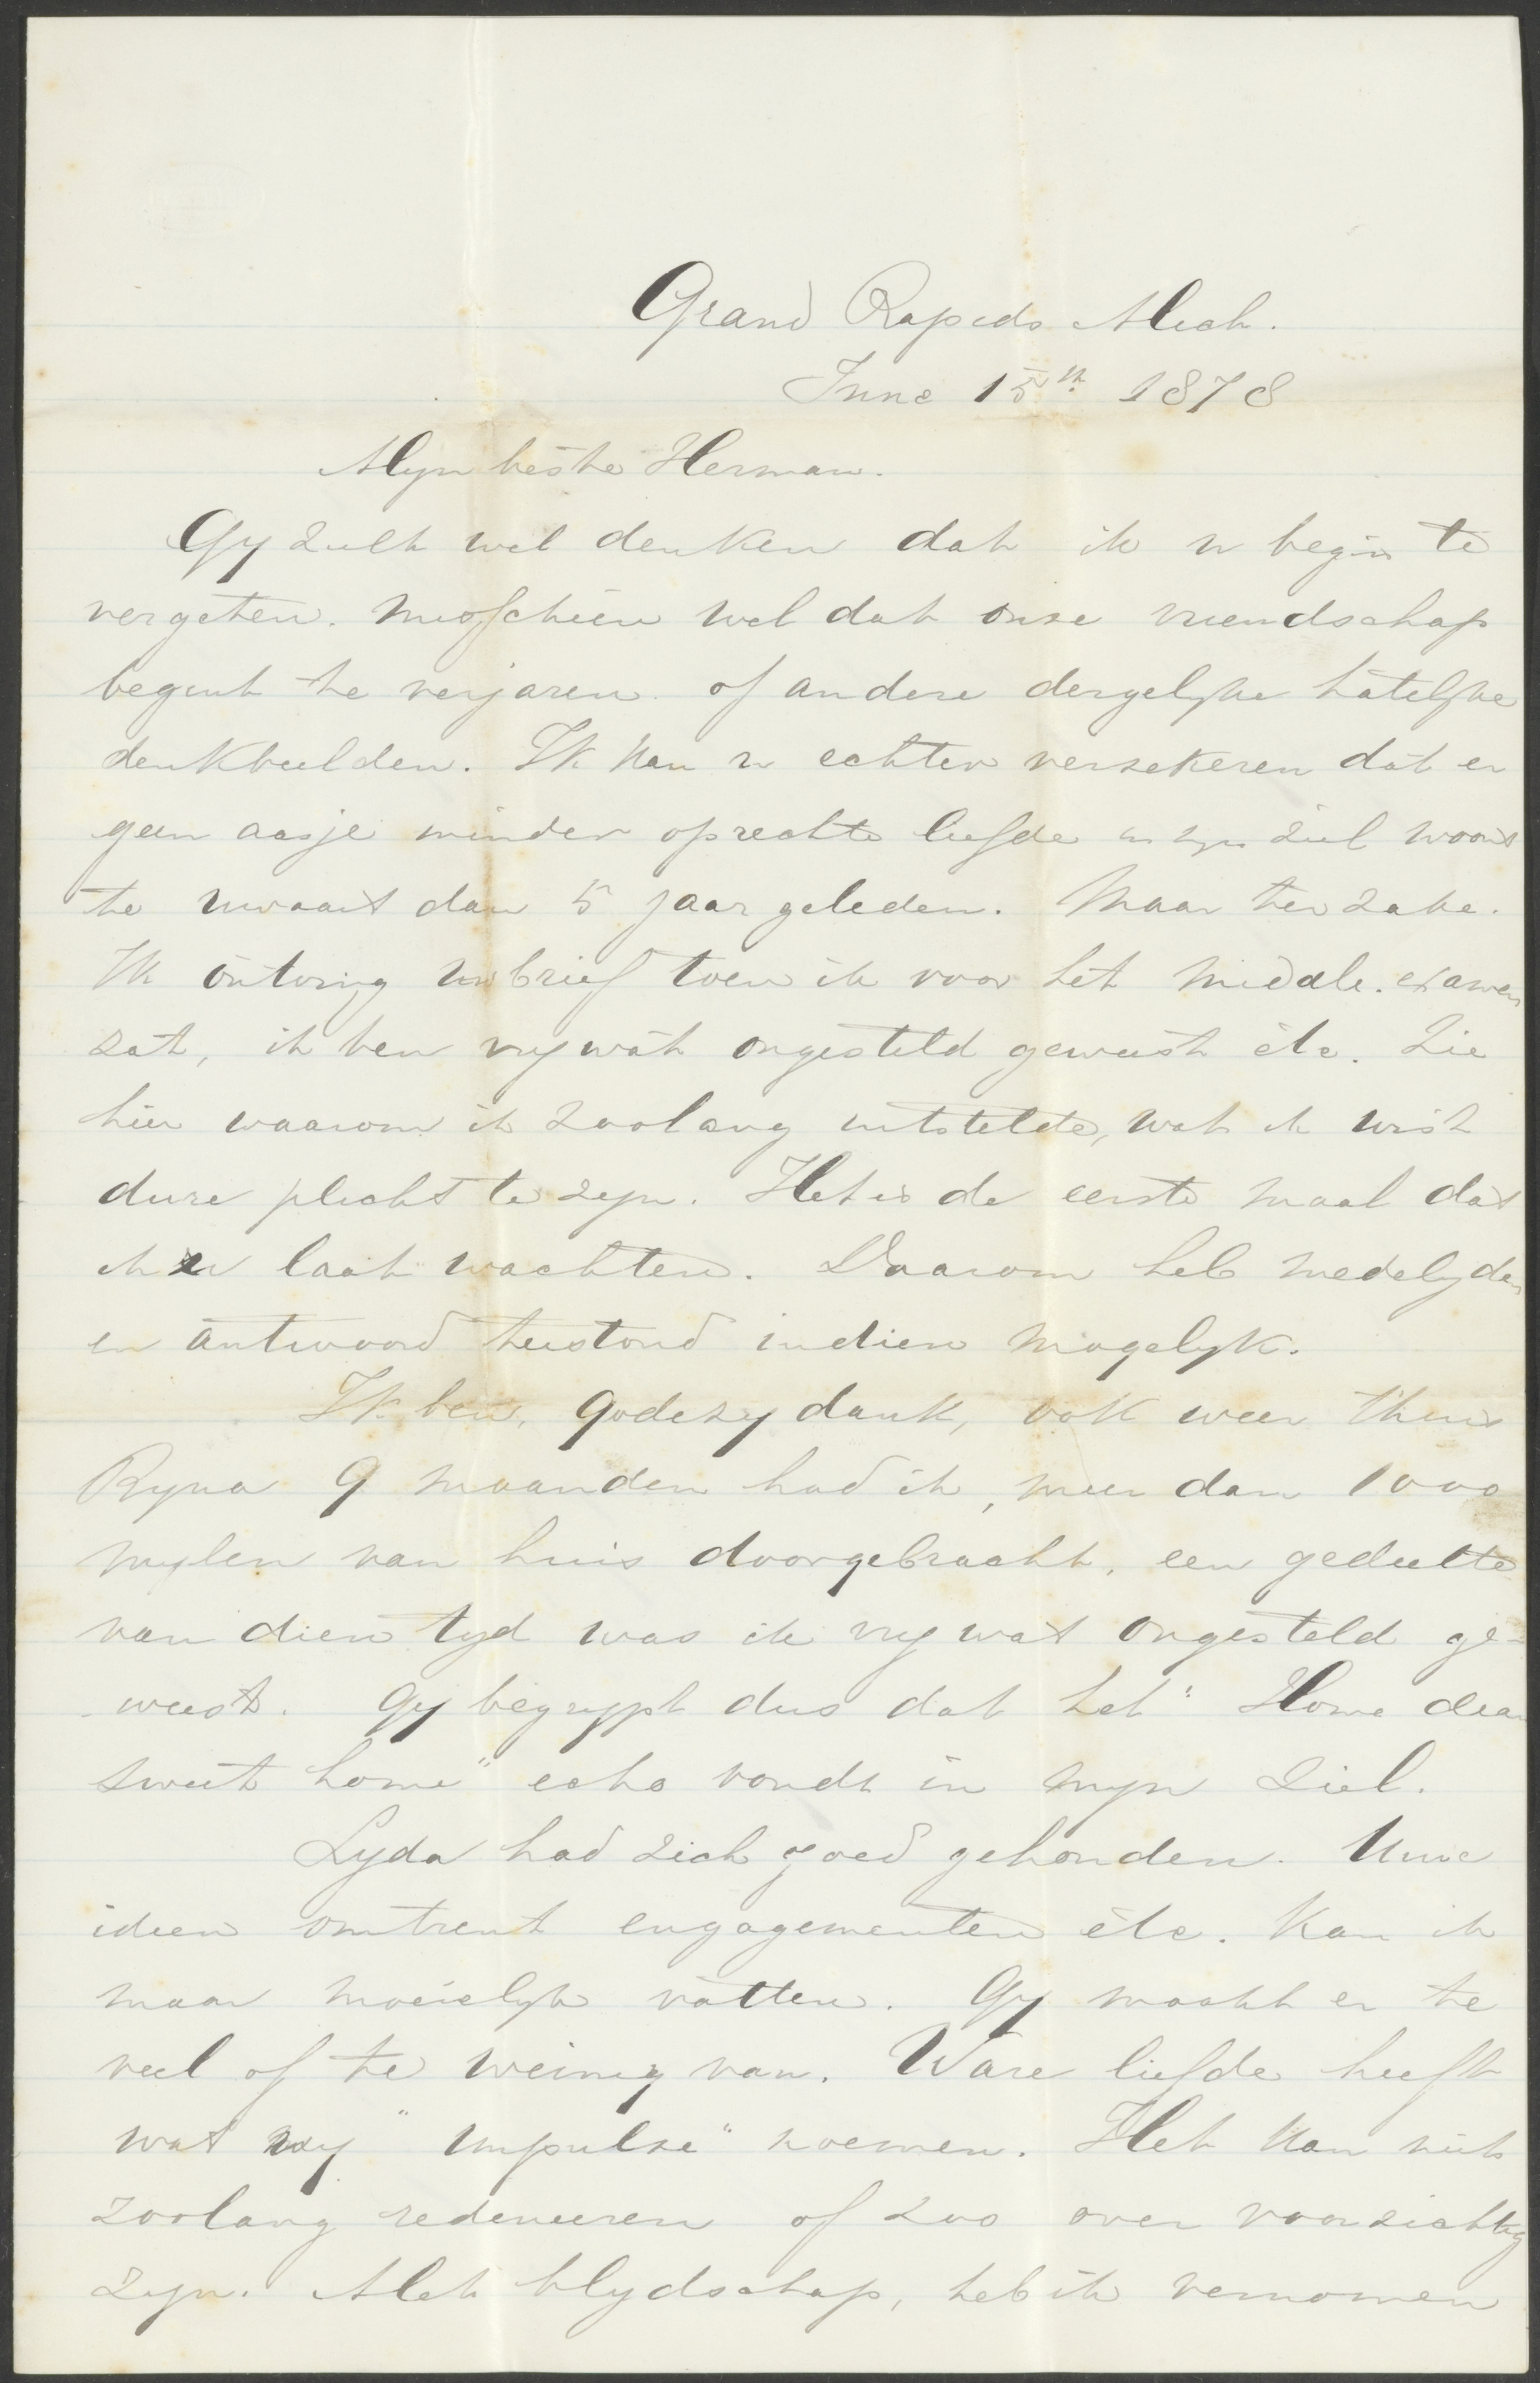 Grand Rapids Mich.
June 15th 1878
Myn beste Herman.
Gy zult wel denken dat ik u begin te
vergeten. Misschien wel dat onze vriendschap
begint te verjaren. of andere dergelyke hatelyke
denkbeelden. Ik kan u echter verzekeren dat er
geen aasje minder oprechte liefde in myn ziel woont
te uwaart dan 5 jaar geleden. Maar ter zake.
Ik ontving uw brief toen ik voor het middle. examen
zat, ik ben vry wat ongesteld geweest etc. Zie
hier waarom ik zoolang uitstelde, wat ik wist
dure plicht te zyn. Het is de eerste maal dat
ik u laat wachten. Daarom heb medelyden
en antwoord terstond indien mogelyk.
Ik ben, Gode zy dank, ook weer thuis
Byna 9 maanden had ik, meer dan 1000
mylen van huis doorgebracht, een gedeelte
van dien tyd was ik vry wat ongesteld ge-
weest. Gy begrypt dus dat het "Home dear
sweet home" echo vondt in myn ziel.
Lyda had zich goed gehouden. Uwe
ideen omtrent engagementen etc. kan ik
maar moeielyk vatten. Gy maakt er te
veel of te weinig van. Ware liefde heeft
wat wy "impulse" noemen. Het kan niet
zoolang redeneeren of zoo over voorzichtig
zyn. Met blydschap, heb ik vernomen